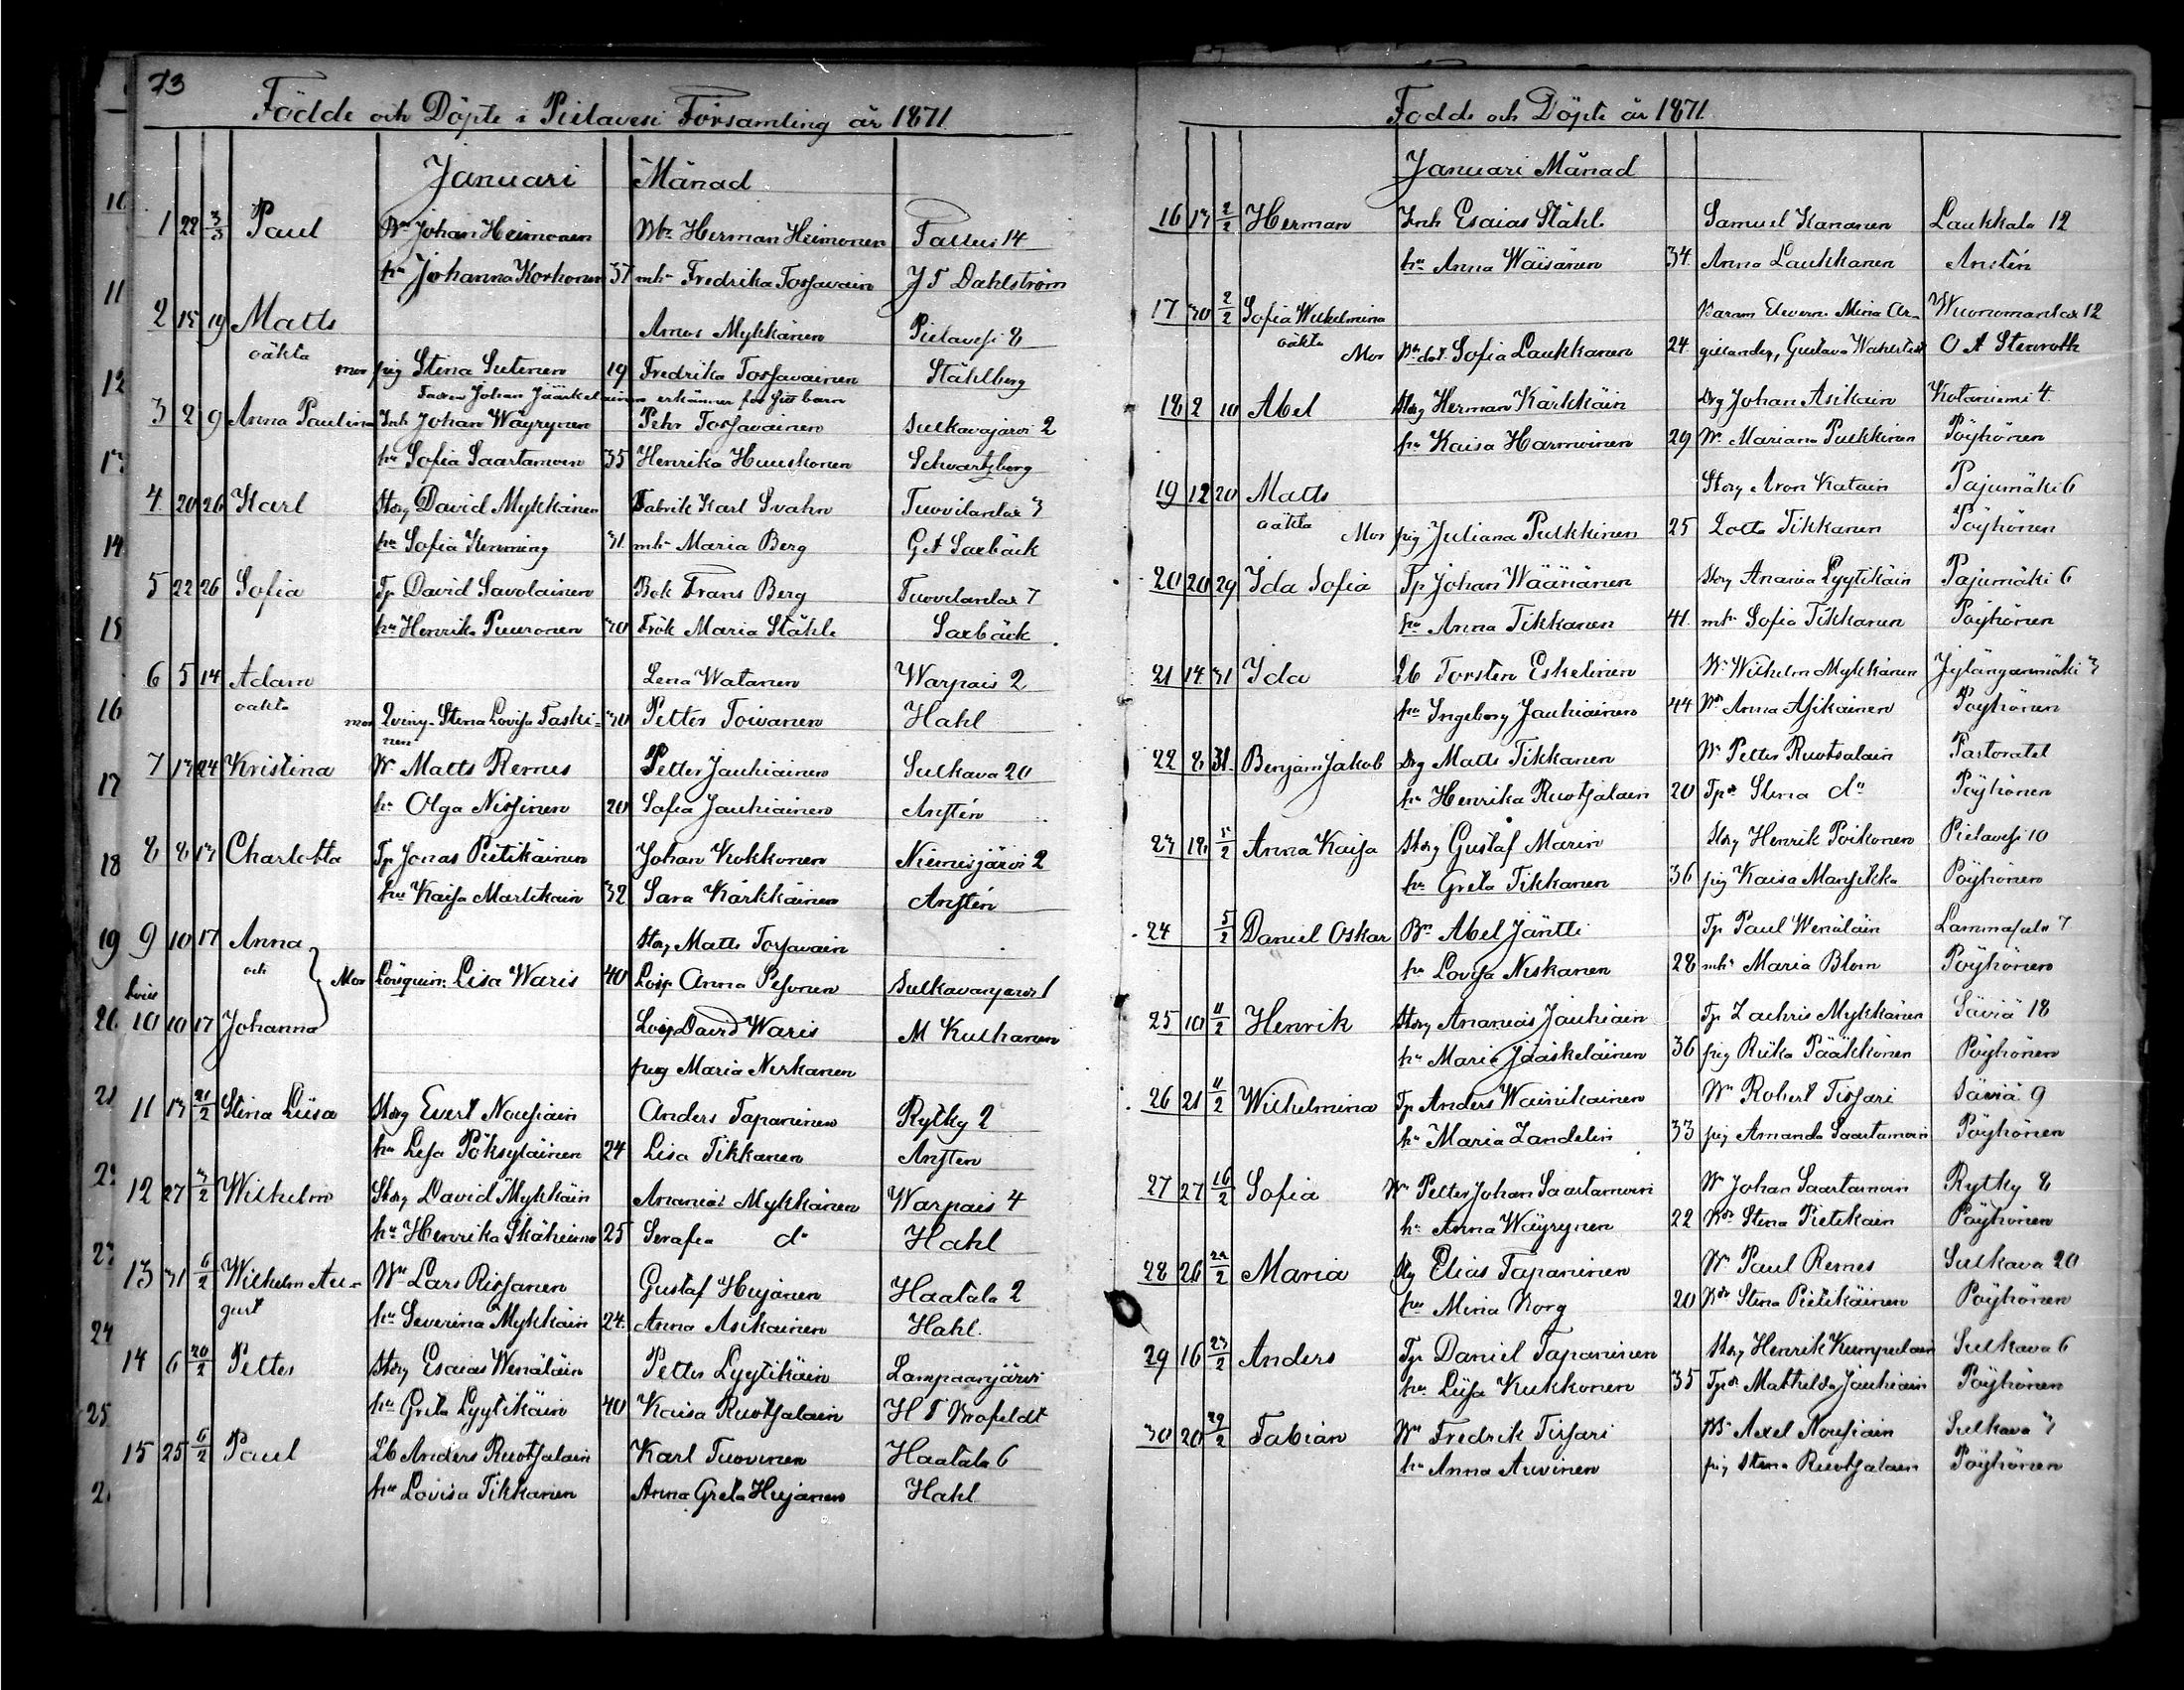 73
Födde och Döpte i Pielavesi Församling år 1871.
Januari Månad
1 22 3/3 Paul Bn Johan Heimonen Mb. Herman Heimonen Tallus 14
hu Johanna Korhonen 37 mh Fredrika Torfavain J T Dahlström
2 15 19 Matts Amos Mykkänen Pielavesi 8
oäkta mor pig Stina Sutinen 19 Fredrika Torfavainen Ståhlberg
Fadren Johan Jääskeläinen erkänner för sitt barn
3 2 9 Anna Paulina Inh Johan Wäyrynen Pehr Torfavainen Sulkavajärvi 2
hu Sofia Saartamoin 35 Henrika Huuskonen Schvartzberg
4 20 26 Karl Storp David Mykkänen Fabrik Karl Svahn Tuovilanlax 3
hu Sofia Kemming 31 mh Maria Berg G A Saxbäck
5 22 26 Sofia Tp David Savolainen Bok Frans Berg Tuovilanlax 7
hu Henrika Puuronen 30 Frök Maria Ståhle Saxbäck
6 5 14 Adam Lena Watanen Warpais 2
oäkta mor Qvinp. Stina Lovisa Taski= 30 Petter Toivanen Hahl
nen
7 13 24 Kristina Wn Matts Remes Petter Jauhiainen Sulkava 20
hu Olga Nissinen 20 Sofia Jauhiainen Anstén
8 8 13 Charlotta Tp Jonas Pietikäinen Johan Kokkonen Niemisjärvi 2
hu Kaisa Martikain 32 Sara Kärkkäinen Anstén
9 10 17 Anna Storp Matts Torfavain
och Mor Lösquin: Lisa Waris 40 Losp Anna Pesonen Sulkavanjarvi 1
10 10 17 Johanna Losp David Waris M Kulhanen
pig Maria Niskanen
11 13 21/2 Stina Liisa Storp Evert Nousiain Anders Tapaninen Rytky 2
hu Lisa Pöksyläinen 24 Lisa Tikkanen Ansten
12 27 3/2 Wilhelm Storp David Mykkäin Ananias Mykkänen Warpais 4
hu Henrika Ikäheimo 25 Serafia do Hahl
13 31 6/2 Wilhelm Au= Wn Lars Rissanen Gustaf Hujanen Haatala 2
gust hu Severina Mykkäin 24. Anna Asikainen Hahl.
14 6 20/2 Petter Storp Esaias Wenäläin Petter Lyytikäin Lampaanjärvi
hu Greta Lyytikäin 40 Kaisa Ruotsalain H T Brofeldt
15 25 6/2 Paul Lb Anders Ruotsalain Karl Tuovinen Haatala 6
hu Lovisa Tikkanen Anna Greta Hujanen Hahl
Födde och Döpte år 1871.
Januari Månad
16 13 2/2 Herman Inh Esaias Ståhl. Samuel Kananen Laukkala 12
hu Anna Wäisänen 34. Anna Laukkanen Anstén
17 30 2/2 Sofia Wilhelmina Mina Ar- Wuonamanlax 12
oäkta Mor Bn. dot. Sofia Laukkanen 24. gillander, Gustava O A Stenroth
18 2 10 Abel Storp Herman Kärkkäin Drg Johan Asikain Kotaniemi 4.
hu Kaisa Harmoinen 29 Wn Mariana Pulkkinen Pöyhönen
19 12 20 Matts Storp Aron Katain Pajumäki 6
oäkta Mor pig Juliana Pulkkinen 25 Lotta Tikkanen Pöyhönen
20 20 29 Ida Sofia Tp Johan Wäänänen Storp Anania Lyytikäin Pajumäki 6
hu Anna Tikkanen 41. mh Sofia Tikkanen Pöyhönen
21 14 31 Ida Lb Torsten Eskelinen Wn Wilhelm Mykkänen Jylänganmäki 3
hu Ingeborg Jauhiainen 44 Anna Asikainen Pöyhönen
22 8 31. Benjam Jakob Drg Matts Tikkanen Wn Petter Ruotsalain Pastoratet
hu Henrika Ruotsalain 20 Tp Stina do Pöyhönen
23 18 5/2 Anna Kaisa Storp Gustaf Marin Storp Henrik Poikonen Pielavesi 10
hu Greta Tikkanen 36 pig Kaisa Mansikka Pöyhönen
24 5/2 Daniel Oskar Bn Abel Jäntti Tp Paul Wenäläin Lammasalo 7
hu Lovisa Niskanen 28 mh Maria Blom Pöyhönen
25 10 11/2 Henrik Storp Ananias Jauhiain Tp Zachris Mykkänen Säviä 18
hu Maria Jääskeläinen 36 pig Riika Pääkkönen Pöyhönen
26 21 11/2 Wilhelmina Tp Anders Wainikainen Wn Robert Tissari Säviä 9
hu Maria Zandelin 33 pig Amanda Saartamoin Pöyhönen
27 27 16/2 Sofia Wn Petter Johan Saastamoin Wn Johan Saartamoin Rytky 8
hu Anna Wäyrynen 22 Stina Pietikain Pöyhönen
28 26 22/2 Maria Elias Tapaninen Wn Paul Remes Sulkava 20
hu Miina Korg 20 Stina Pietikäinen Pöyhönen
29 16 23/2 Anders Tp Daniel Tapaninen Storp Henrik Kumpulain Sulkava 6
hu Liisa Kukkonen 35 Mathilda Jauhiain Pöyhönen
30 20 29/2 Fabian Wn Fredrik Tissari Axel Nousiain Sulkava 3
hu Anna Auvinen pig Stina Ruotsalain Pöyhönen